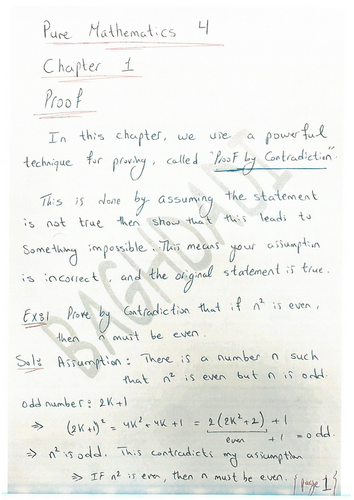 Pure Mathematics 4
Chapter 1
Proof
In this chapter, we use a powerful
technique for proving, called "Proof by Contradiction".
This is done by assuming the statement
is not true then show that this leads to
something impossible. This means your assumption
is incorrect, and the original statement is true.
Ex8| Prove by Contradiction that if n² is even,
then n must be even.
Sol: Assumption: There is a number n such
that n² is even but n is odd.
odd number: 2K+1
⇒ (2K+1)² = 4K² + 4K + 1 = 2(2K²+2) + 1
even + 1 = odd.
⇒ n² is odd. This contradicts my assumption
⇒ IF n² is even, then n must be even.
Page 1
BAGHDADI